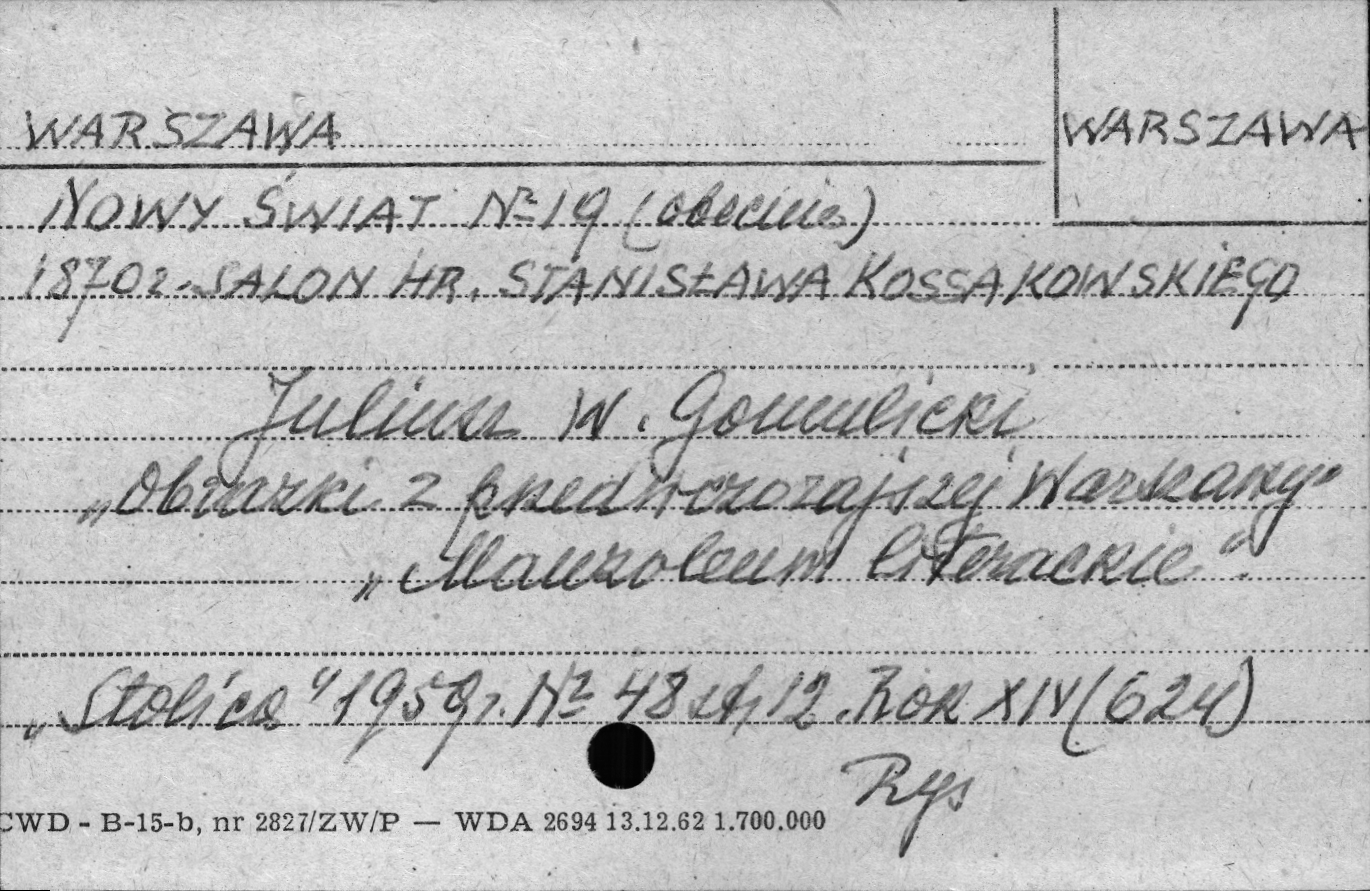 WARSZAWA
WARSZAWA
NOWY ŚWIAT № 19 (obecnie)
1870 r. SALON HR. STANISŁAWA KOSSAKOWSKIEGO
Juliusz W. Gomulicki
„Obrazki z przedwczorajszej Warszawy"
„Mauzoleum literackie".
„Stolica" 1959 r. № 48 str. 12. Rok XIV (624)
Rys
CWD - B-15-b, nr 2827/ZW/P — WDA 2694 13.12.62 1.700.000